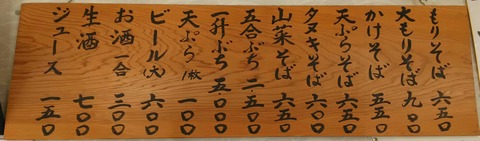 もりそば 六五〇
大もりそば 九〇〇
かけそば 五五〇
天ぷらそば 六五〇
タヌキそば 六〇〇
山菜そば 六五〇
五合ぶち 二五〇〇
一升ぶち 五〇〇〇
天ぷら 1枚 一〇〇
ビール(大) 六〇〇
お酒 一合 三〇〇
生酒 七〇〇
ジュース 一五〇